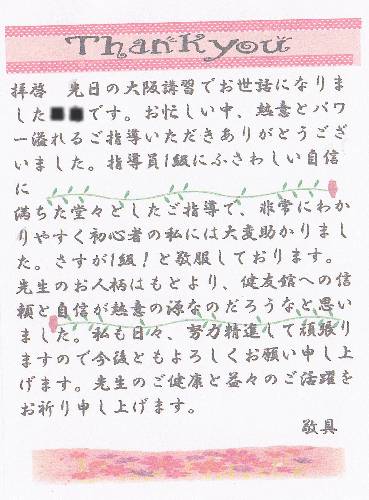 ThanKyou
拝啓　先日の大阪講習でお世話になりま
した です。お忙しい中、熱意とパワ
ー溢れるご指導いただきありがとうござ
いました。指導員1級にふさわしい自信
に
満ちた堂々としたご指導で、非常にわか
りやすく初心者の私には大変助かりまし
た。さすが1級！と敬服しております。
先生のお人柄はもとより、健友館への信
頼と自信が熱意の源なのだろうなと思い
ました。私も日々、努力精進して頑張り
ますので今後ともよろしくお願い申し上
げます。先生のご健康と益々のご活躍を
お祈り申し上げます。
敬具